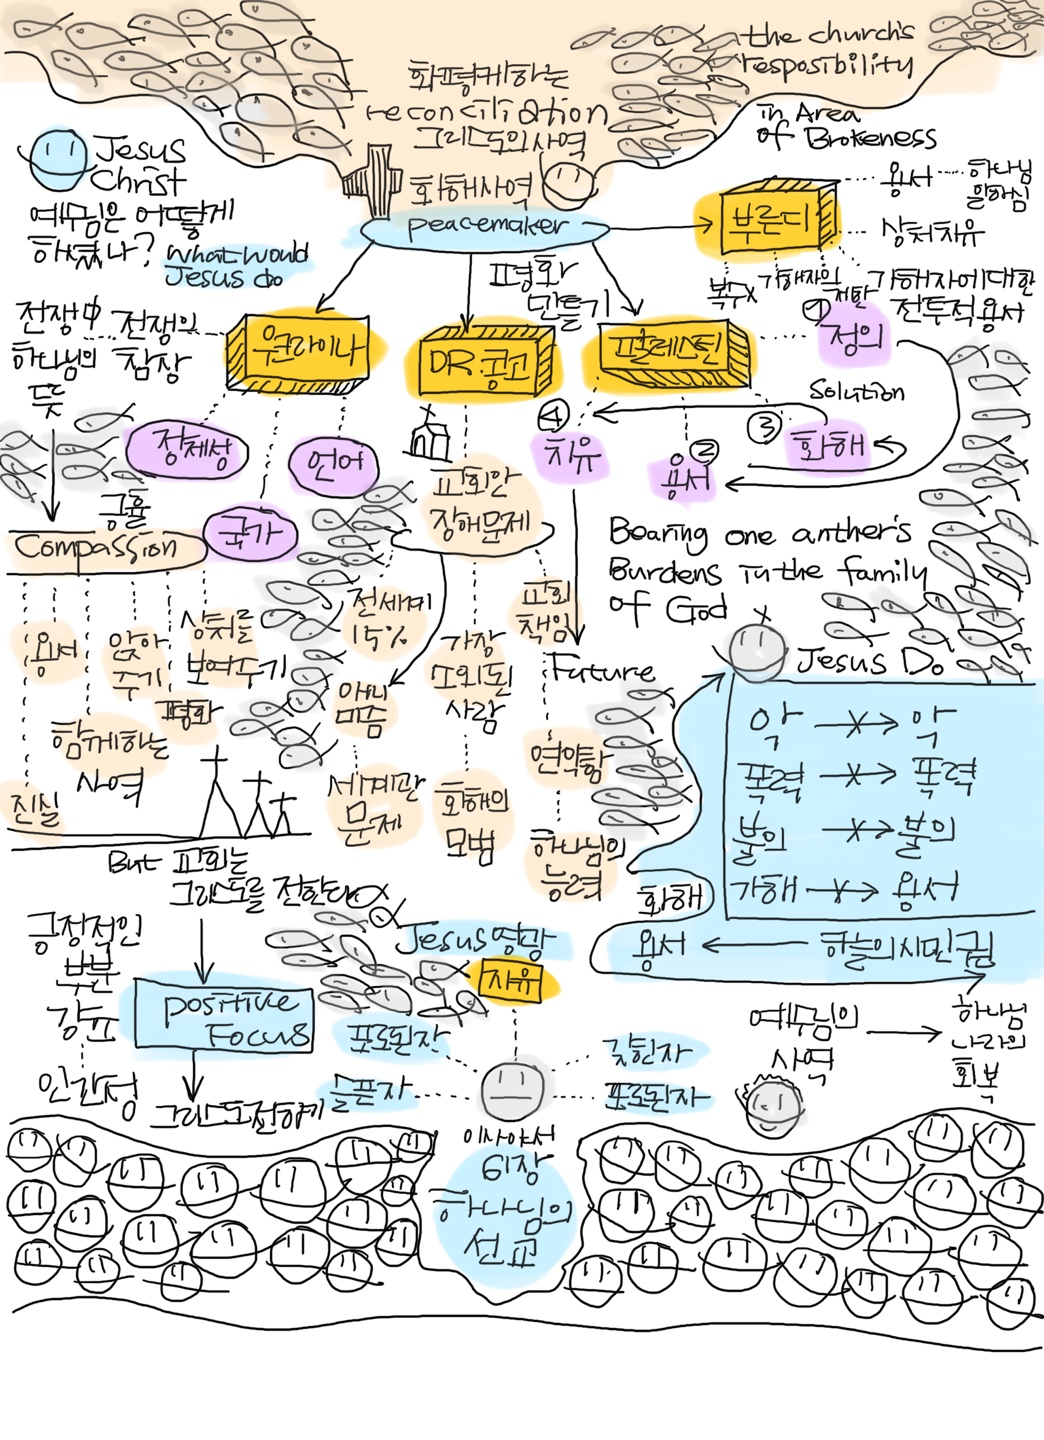 the church's
resposibility
화평케하는
reconciliation
그리스도의사역
화해사역
in Area
of Brokeness
Jesus
Christ
예수님은 어떻게
하셨나?
what would
Jesus do
peacemaker
평화
만들기
부룬디
용서
하나님
말하심
상처치유
복수x
가해자의
가해자에대한
전투적용서
전쟁中
하나님의
뜻
전쟁의
참장
우크라이나
DR콩고
팔레스틴
①
정의
Solution
④
치유
②
용서
③
화해
정체성
언어
국가
긍휼
Compassion
용서
안아
주기
상처를
보여주기
평화
함께하는
사역
진실
교회안
장해문제
전세계
15%
가장
소외된
사람
교회
책임
아니
믿음
세계관
문제
화해의
모범
연약함
하나님의
능력
Future
Bearing one anther's
Burdens in the family
of God
Jesus Do
악 x→ 악
폭력 x→ 폭력
불의 x→ 불의
가해 x→ 용서
화해
용서 ← 하늘의시민권
But 교회는
그리스도를 전한다
긍정적인
부분
강조
인간성
positive
Focus
그리스도전하게
Jesus영광
자유
포로된자
슬픈자
갇힌자
포로된자
이사야서
61장
하나님의
선교
예수님의
사역
하나님
나라의
회복